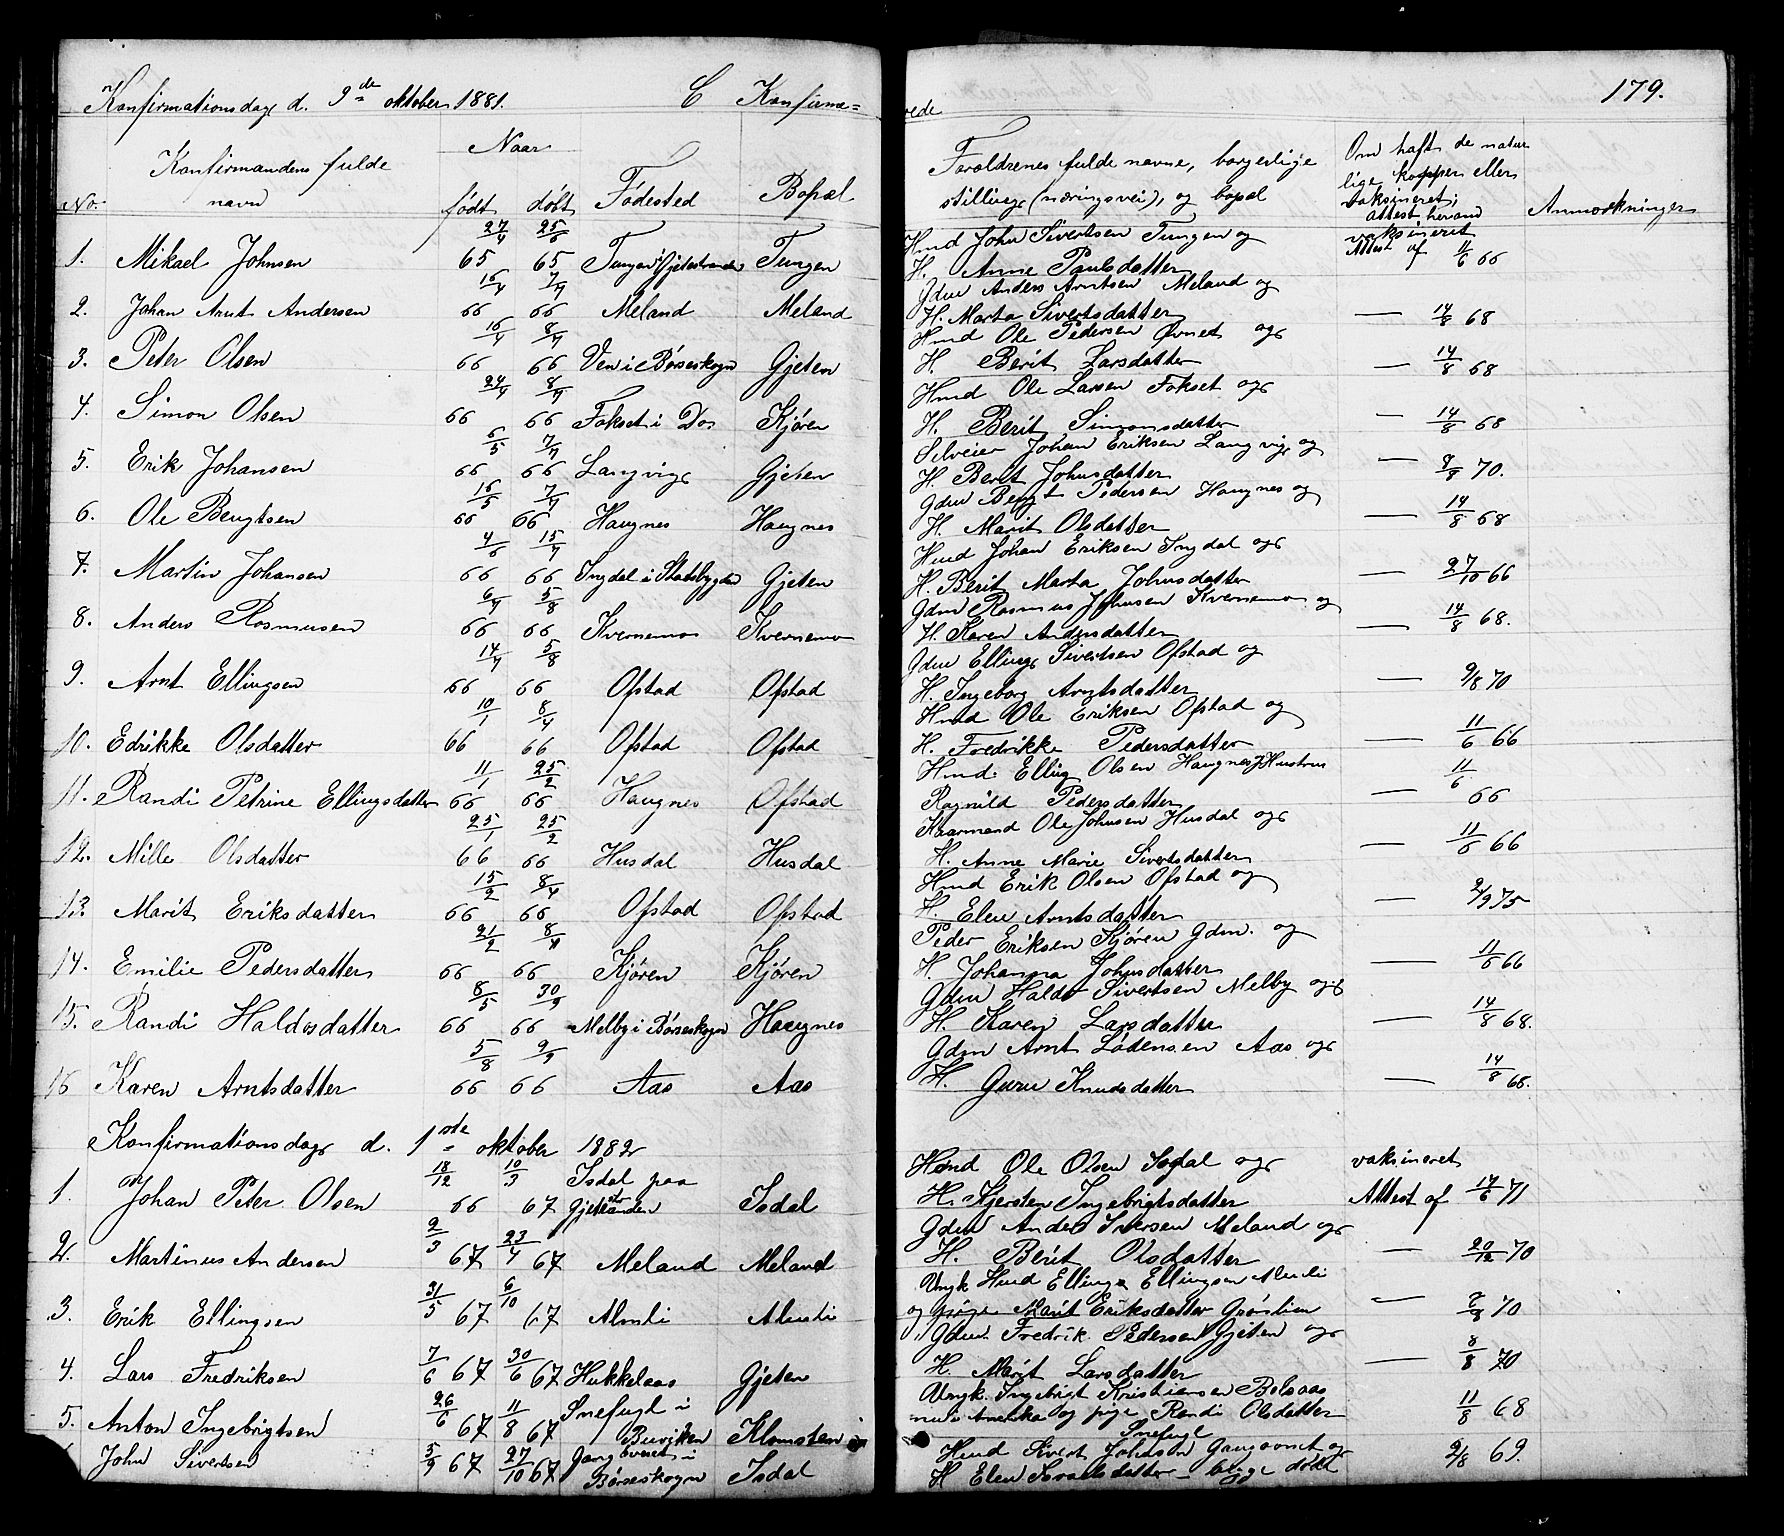 Konfirmationsdag d. 9de oktober 1881. C Konfirme=
rede 179.
No. Konfirmandens fulde navn Naar født døbt Fødested Bopæl Forældrenes fulde navne, borgerlige stilling (næringsvei), og bopæl Om haft de naturlige kopper eller vaksineret; attest herom Anmærkninger
1. Mikael Johnsen 27/4 65 25/6 65 Tungen i Gjetestranden Tungen Hmd John Sivertsen Tungen og vaksineret
H. Anne Paulsdatter Attest af 11/6 66
2. Johan Arnt Andersen 16/4 66 7/4 66 Meland Meland Gdm Anders Arntsen Meland og
H. Marta Sivertsdatter — 14/8 68
3. Peter Olsen 16/4 66 8/4 66 Ven i Børseskogn Gjeten Hmd Ole Pedersen Øvnet og
H. Berit Larsdatter — 14/8 68
4. Simon Olsen 24/4 66 8/4 66 Fokset i Do Kjøren Hmd Ole Larsen Fokset og
H. Berit Simonsdatter — 14/8 68
5. Erik Johansen 6/5 66 7/4 66 Langvig Gjeten Selveier Johan Eriksen Langvig og
H. Berit Johnsdatter — 9/8 70.
6. Ole Bengtsen 16/5 66 7/4 66 Haugnes Haugnes Gdm Bengt Pedersen Haugnes og
H. Marit Olsdatter — 14/8 68
7. Martin Johansen 4/6 66 15/4 66 Ingdal i Stadsbygden Gjeten Hmd Johan Eriksen Ingdal og
H. Berit Marta Johnsdatter — 27/10 66
8. Anders Rasmusen 6/4 66 5/8 66 Kvernemo Kvernemo Gdm Rasmus Johnsen Kvernemo og
H. Karen Andersdatter — 14/8 68.
9. Arnt Ellingsen 14/4 66 5/8 66 Ofstad Ofstad Gdm Elling Sivertsen Ofstad og
H. Ingeborg Arntsdatter — 9/8 70
10. Edrikke Olsdatter 10/1 66 8/4 66 Ofstad Ofstad Hmd Ole Eriksen Ofstad og
H. Fredrikke Pedersdatter — 11/6 66
11. Randi Petrine Ellingsdatter 11/1 66 25/2 66 Haugnes Ofstad Hmd. Elling Olsen Haugnes Hustru
Ragnild Pedersdatter — 11/6 66
12. Mille Olsdatter 25/1 66 25/2 66 Husdal Husdal Kaarmand Ole Johnsen Husdal og
H. Anne Marie Sivertsdatter — 11/6 66
13. Marit Eriksdatter 15/2 66 8/4 66 Ofstad Ofstad Hmd Erik Olsen Ofstad og
H. Elen Arntsdatter — 2/9 75
14. Emilie Pedersdatter 21/2 66 8/4 66 Kjøren Kjøren Peder Eriksen Kjøren Gdm. og
H. Johanna Johnsdatter — 11/6 66
15. Randi Haldosdatter 8/5 66 30/9 66 Melby i Børseskogn Haugnes Gdm Haldo Sivertsen Melby og
H. Karen Larsdatter — 14/8 68.
16 Karen Arntsdatter 5/8 66 9/9 66 Aas Aas Gdm Arnt Lødensen Aas og
H. Guru Knudsdatter — 14/8 68.
Konfirmationsdag d. 1ste oktober 1882
1. Johan Peter Olsen 18/12 66 10/3 67 Isdal paa Gjetestranden Isdal Hmd Ole Olsen Isdal og vaksineret
H. Kjersten Ingebrigtsdatter Attest af 14/6 71
2. Martinus Andersen 2/3 67 23/4 67 Meland Meland Gdm Anders Iversen Meland og
H. Berit Olsdatter — 20/12 70
3. Erik Ellingsen 31/5 67 6/10 67 Almli Almli Ungk Hmd Elling Ellingsen Almli
og pige Marit Eriksdatter Grøslien — 9/8 70
4. Lars Fredriksen 7/6 67 30/6 67 Hukkelaas Gjeten Gdm. Fredrik Pedersen Gjeten og
H. Marit Larsdatter — 8/8 70
5. Anton Ingebrigtsen 26/6 67 11/8 67 Snefugl i Buviken Klomsten Ungk. Ingebrigt Kristiansen Bolsaas
nu i Amerika og pige Randi Olsdatter Snefugl 11/8 68
John Sivertsen 5/9 67 27/10 67 i Børseskogn Isdal Hmd Sivert Johnsen og
H Elen Israelsdatter — begge døde 9/8 69.